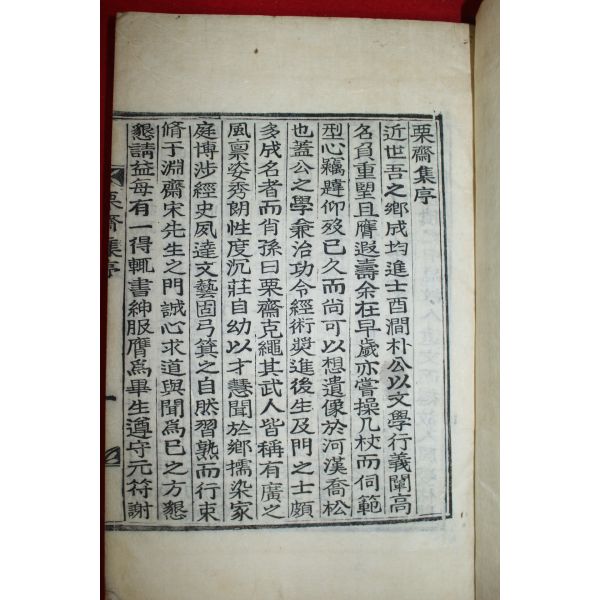 栗齋集序
近世吾之鄉成均進士酉澗朴公以文學行義闡高
名負重望且膺遐壽余在早歲亦嘗操几杖而伺範
型心竊韙仰歿已久而尚可以想遺像於河漢喬松
也蓋公之學兼治功令經術奬進後生及門之士頗
多成名者而肖孫曰栗齋克繩其武人皆稱有廣之
風稟姿秀朗性度沉莊自幼以才慧聞於鄉擩染家
庭博涉經史夙達文藝固弓箕之自然習熟而行束
脩于淵齋宋先生之門誠心求道與聞爲巳之方懇
懇請益每有一得輒書紳服膺爲畢生遵守元符謝
栗齋集序
一